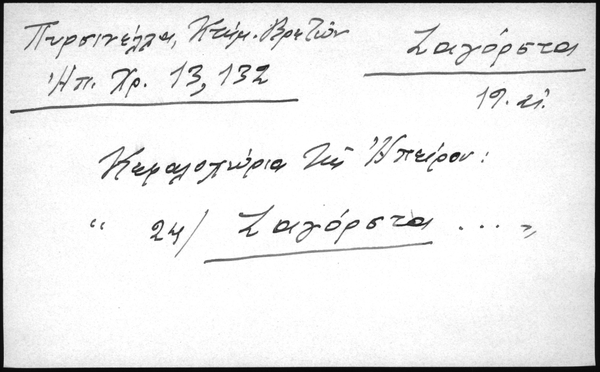 Πυρσινέλλα, Κτήμ. Βρετῶν
Ἠπ. Χρ. 13, 132
Σαγόρστα
19. αἰ.
Κεφαλοχώρια τῆς Ἠπείρου:
“ 24/ Σαγόρστα ... „